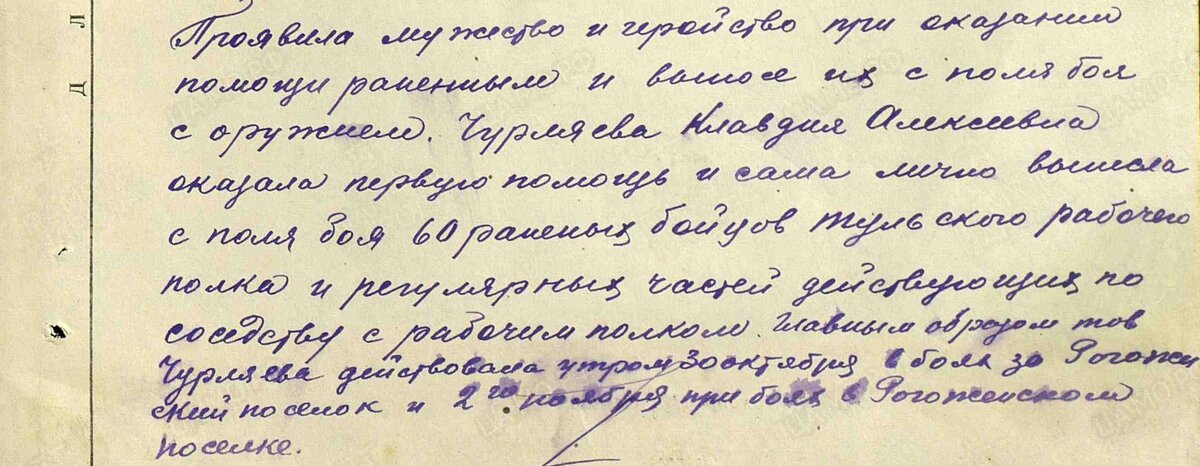 Проявила мужество и геройство при оказании
помощи раненным и выносе их с поля боя
с оружием. Чурляева Клавдия Алексеевна
оказала первую помощь и сама лично вынесла
с поля боя 60 раненых бойцов Тульского рабочего
полка и регулярных частей действующих по
соседству с рабочим полком. Главным образом тов
Чурляева действовала утром 30 октября в боях за Рогожен
ский поселок и 2го ноября при боях в Рогоженском
поселке.
Д Л